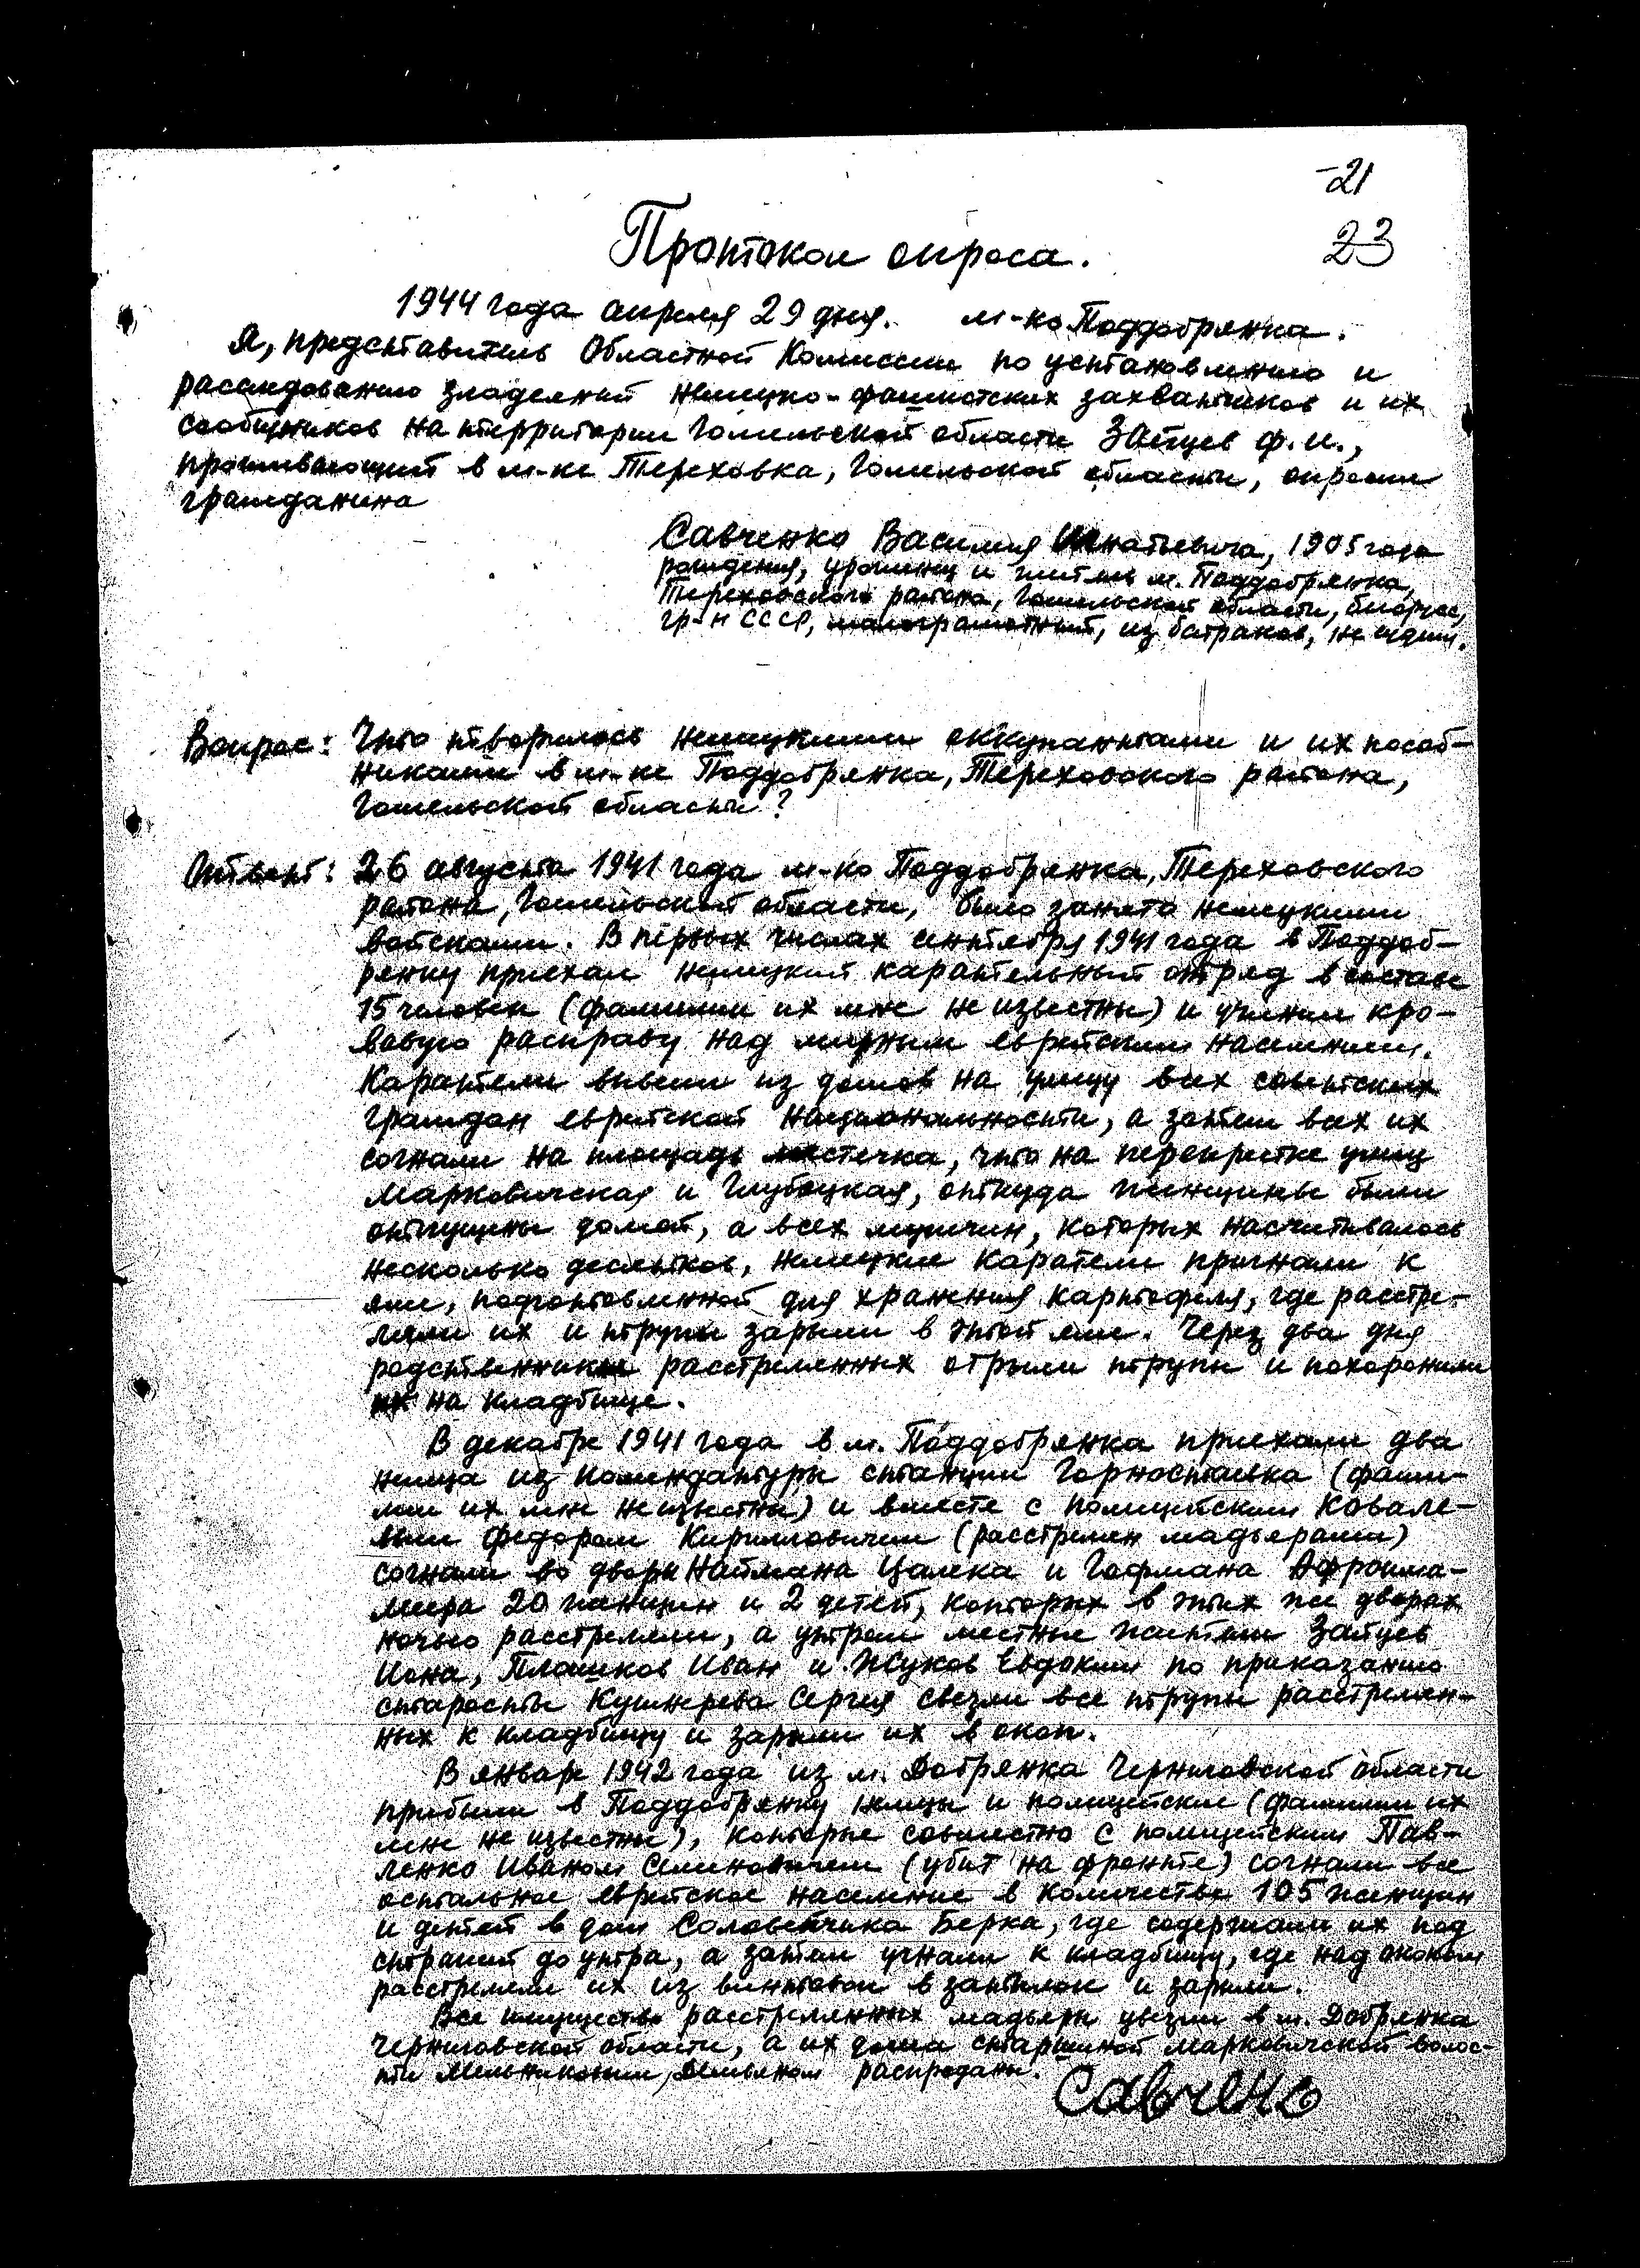 -21
23
Протокол опроса.
1944 года апреля 29 дня. м-ко Поддобрянка.
Я, представитель Областной Комиссии по установлению и
расследованию злодеяний немецко-фашистских захватчиков и их
сообщников на территории Гомельской области Зайцев Ф.И.,
проживающий в м-ке Тереховка, Гомельской области, опросил
гражданина
Савченко Василия Игнатьевича, 1905 года
рождения, уроженец и житель м. Поддобрянка,
Тереховского района, Гомельской области, белорус,
гр-н СССР, малограмотный, из батраков, не судим.
Вопрос: Что творилось немецкими оккупантами и их пособ-
никами в м-ке Поддобрянка, Тереховского района,
Гомельской области?
Ответ: 26 августа 1941 года м-ко Поддобрянка, Тереховского
района, Гомельской области, было занято немецкими
войсками. В первых числах сентября 1941 года в Поддоб-
рянку приехал немецкий карательный отряд в составе
15 человек (фамилии их мне не известны) и учинил кро-
вавую расправу над мирным еврейским населением.
Каратели вывели из домов на улицу всех советских
граждан еврейской национальности, а затем всех их
согнали на площадь местечка, что на перекрестке улиц
Марковичская и Глубоцкая, откуда женщины были
отпущены домой, а всех мужчин, которых насчитывалось
несколько десятков, немецкие каратели пригнали к
яме, подготовленной для хранения картофеля, где расстре-
ляли их и трупы зарыли в этой яме. Через два дня
родственники расстрелянных отрыли трупы и похоронили
их на кладбище.
В декабре 1941 года в м. Поддобрянка приехали два
немца из комендатуры станции Горностаевка (фами-
лии их мне неизвестны) и вместе с полицейским Ковале-
вым Федором Кирилловичем (расстрелян мадьярами)
согнали во дворы Наймана Цалека и Гофмана Афроима-
Меера 20 женщин и 2 детей, которых в этих же дворах
ночью расстреляли, а утром местные жители Зайцев
Иона, Плашков Иван и Жуков Евдоким по приказанию
старосты Кушнерева Сергея свезли все трупы расстрелян-
ных к кладбищу и зарыли их в окоп.
В январе 1942 года из м. Добрянка Черниговской области
прибыли в Поддобрянку немцы и полицейские (фамилии их
мне не известны), которые совместно с полицейским Пав-
ленко Иваном Семеновичем (убит на фронте) согнали все
остальное еврейское население в количестве 105 женщин
и детей в дом Соловейчика Берка, где содержали их под
стражей до утра, а затем угнали к кладбищу, где над окопом
расстреляли их из винтовок в затылок и зарыли.
Все имущество расстрелянных мадьяры увезли в м. Добрянка
Черниговской области, а их дома старшиной Марковичской волос-
ти Мельниковым, Демьяном распроданы.
Савченко